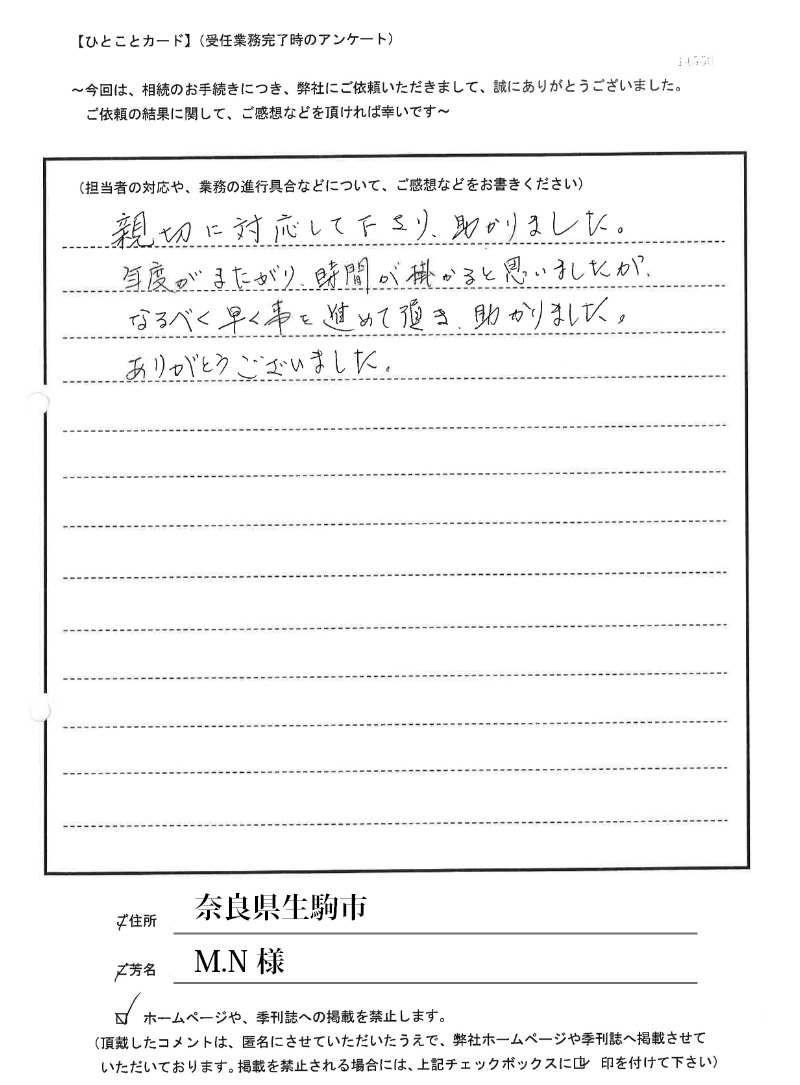 【ひとことカード】（受任業務完了時のアンケート）
～今回は、相続のお手続きにつき、弊社にご依頼いただきまして、誠にありがとうございました。
ご依頼の結果に関して、ご感想などを頂ければ幸いです～
（担当者の対応や、業務の進行具合などについて、ご感想などをお書きください）
親切に対応して下さり、助かりました。
年度がまたがり、時間が掛かると思いましたが、
なるべく早く事を進めて頂き、助かりました。
ありがとうございました。
ご住所 奈良県生駒市
ご芳名 M.N 様
☑ ホームページや、季刊誌への掲載を禁止します。
（頂戴したコメントは、匿名にさせていただいたうえで、弊社ホームページや季刊誌へ掲載させて
いただいております。掲載を禁止される場合には、上記チェックボックスに☑ 印を付けて下さい）